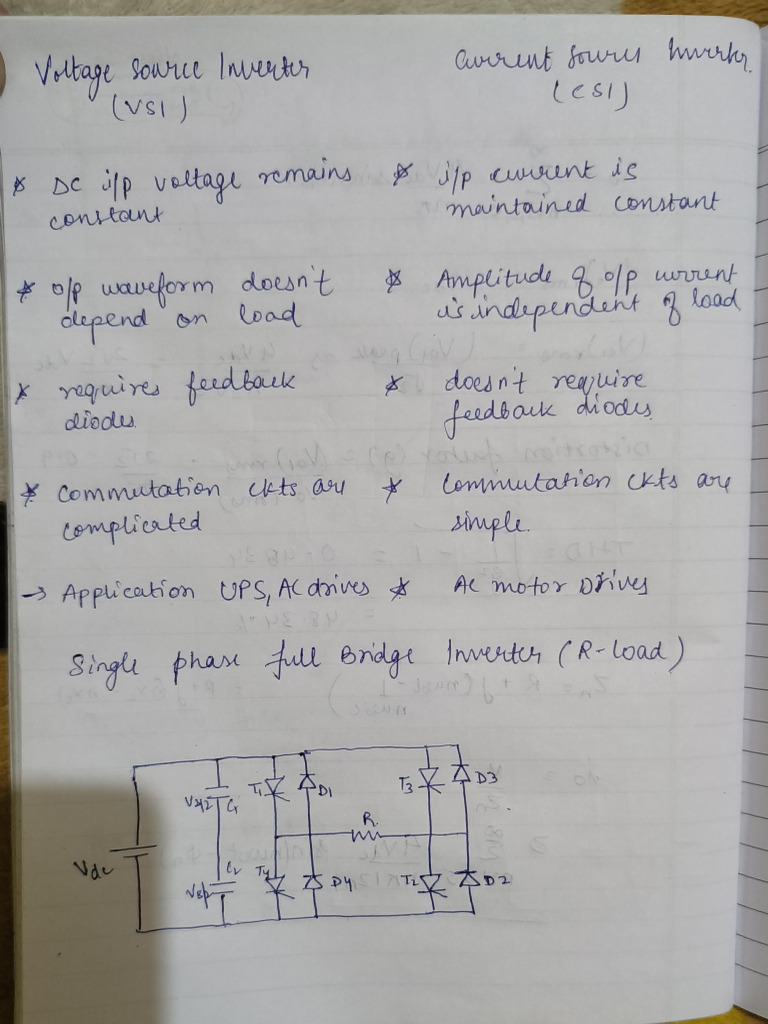 Voltage Source Inverter
(VSI)
Current Source Inverter.
(CSI)
* DC i/p voltage remains
constant
* i/p current is
maintained constant
* o/p waveform doesn't
depend on load
* Amplitude of o/p current
is independent of load
* requires feedback
diodes.
* doesn't require
feedback diodes.
* Commutation ckts are
complicated
* Commutation ckts are
simple.
→ Application UPS, AC drives
* AC motor Drives
Single phase full Bridge Inverter (R-load)
T1 D1 T3 D3
Vs/2 C1
R
Vdc
C2
T4 D4 T2 D2